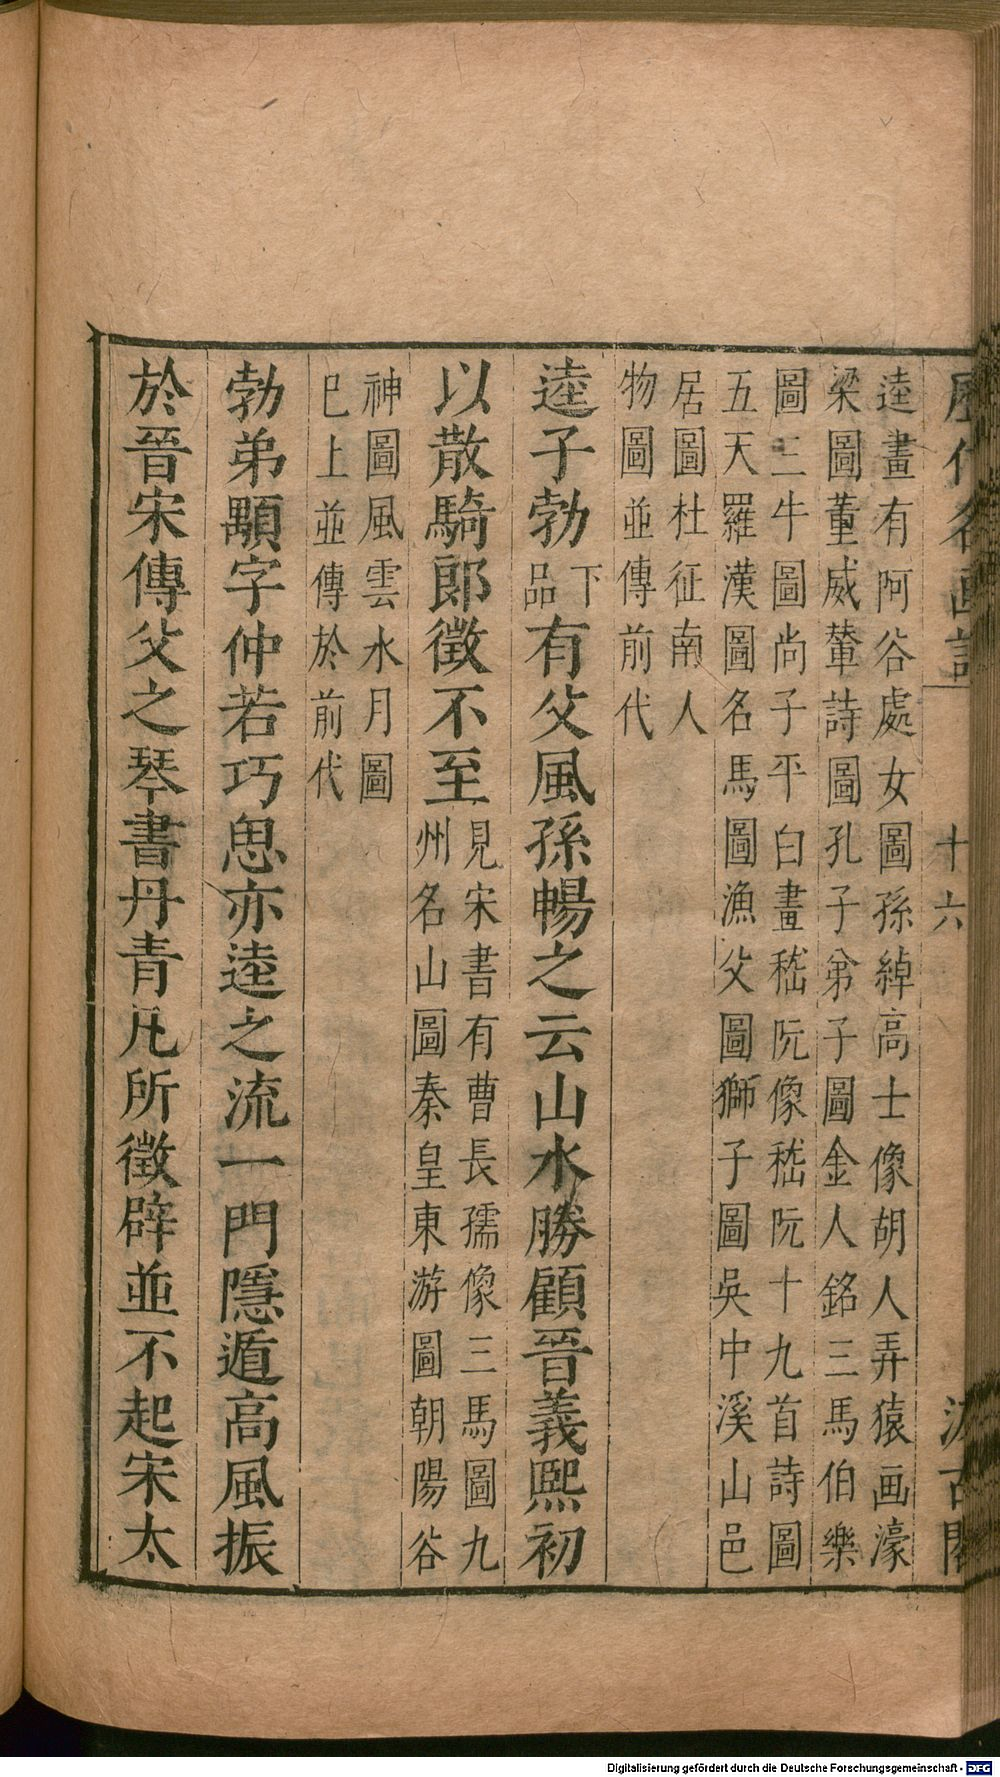 歷代名画記
十六
汲古閣
逵畫有阿谷處女圖孫綽高士像胡人弄猿画濠
梁圖董威輦詩圖孔子弟子圖金人銘三馬伯樂
圖三牛圖尚子平白畫嵇阮像嵇阮十九首詩圖
五天羅漢圖名馬圖漁父圖獅子圖吳中溪山邑
居圖杜征南人
物圖並傳前代
逵子勃下品有父風孫暢之云山水勝顧晉義熙初
以散騎郎徵不至見宋書有曹長孺像三馬圖九
州名山圖秦皇東游圖朝陽谷
神圖風雲水月圖
巳上並傳於前代
勃弟顒字仲若巧思亦逵之流一門隱遁高風振
於晉宋傳父之琴書丹青凡所徵辟並不起宋太
Digitalisierung gefördert durch die Deutsche Forschungsgemeinschaft - DFG